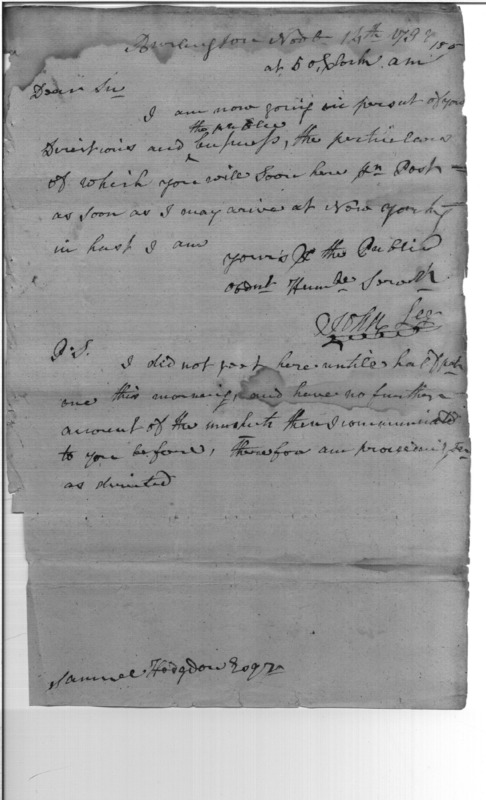 Burlington Novr. 14th 179
at 5 o,Clock am
Dear Sir
I am now going in persut of your
the public
Directions and business, the perticulars
of which you will Soon here pr Post
as soon as I may arive at New york
in hast I am
yours & the Public
obdnt Humbe Servt
John Lee
P.S. I did not get here untill half past
one this morning, and have no further
account of the muskets then I communicated
to you before, therefoor am proceeding
as directed
Samuel Hodgdon Esqr